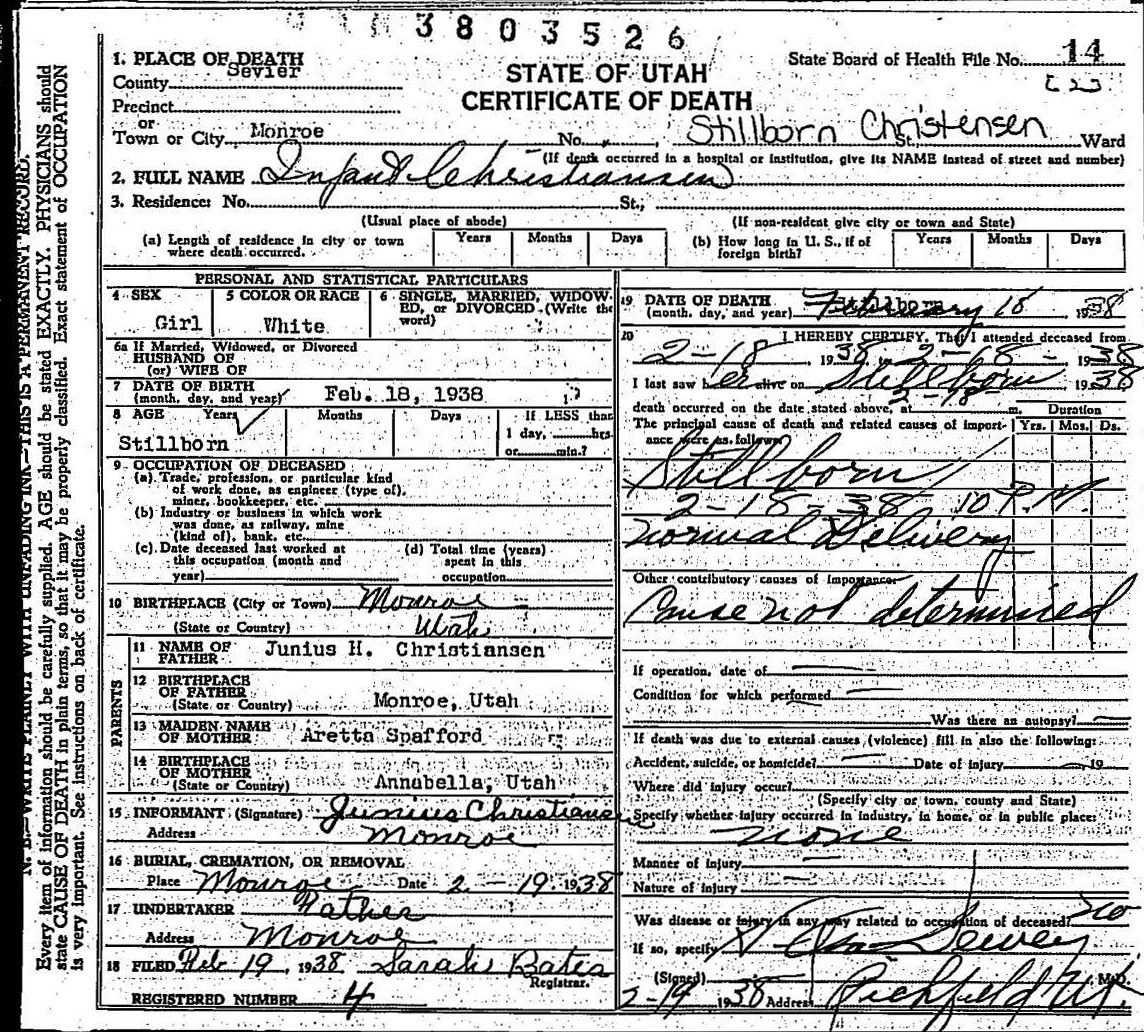 3803526
1. PLACE OF DEATH
State Board of Health File No. 14
County Sevier
STATE OF UTAH
Precinct
CERTIFICATE OF DEATH
or
Town or City Monroe No. St., Ward
Stillborn Christensen
(If death occurred in a hospital or institution, give its NAME instead of street and number)
2. FULL NAME Infant Christiansen
3. Residence: No. St.,
(Usual place of abode) (If non-resident give city or town and State)
(a) Length of residence in city or town where death occurred. Years Months Days
(b) How long in U. S., if of foreign birth? Years Months Days
PERSONAL AND STATISTICAL PARTICULARS
4 SEX Girl
5 COLOR OR RACE White
6 SINGLE, MARRIED, WIDOWED, or DIVORCED (Write the word)
6a If Married, Widowed, or Divorced
HUSBAND OF
(or) WIFE OF
7 DATE OF BIRTH
(month, day, and year) Feb. 18, 1938
8 AGE Years Months Days If LESS than
1 day, hrs.
or min.?
Stillborn
9 OCCUPATION OF DECEASED
(a) Trade, profession, or particular kind
of work done, as engineer (type of),
miner, bookkeeper, etc.
(b) Industry or business in which work
was done, as railway, mine
(kind of), bank, etc.
(c) Date deceased last worked at
this occupation (month and
year)
(d) Total time (years)
spent in this
occupation
10 BIRTHPLACE (City or Town) Monroe
(State or Country) Utah
PARENTS
11 NAME OF FATHER Junius H. Christiansen
12 BIRTHPLACE OF FATHER
(State or Country) Monroe, Utah
13 MAIDEN NAME OF MOTHER Aretta Spafford
14 BIRTHPLACE OF MOTHER
(State or Country) Annabella, Utah
15 INFORMANT (Signature) Junius Christianse
Address Monroe
16 BURIAL, CREMATION, OR REMOVAL
Place Monroe Date 2-19 1938
17 UNDERTAKER Father
Address Monroe
18 FILED Feb 19, 1938 Sarah Bates
Registrar.
REGISTERED NUMBER 4
19 DATE OF DEATH
(month, day, and year) February 18, 1938
20 I HEREBY CERTIFY, That I attended deceased from
2-18 1938 to 2-18- 1938
I last saw her alive on Stillborn 1938
2-18
death occurred on the date stated above, at m.
Duration
The principal cause of death and related causes of importance were as follows: Yrs. Mos. Ds.
Stillborn
2-18-38 10 P.M.
Normal Delivery
Other contributory causes of importance:
Cause not determined
If operation, date of
Condition for which performed
Was there an autopsy?
If death was due to external causes (violence) fill in also the following:
Accident, suicide, or homicide? Date of injury 19
Where did injury occur?
(Specify city or town, county and State)
Specify whether injury occurred in industry, in home, or in public place:
none
Manner of injury
Nature of injury
Was disease or injury in any way related to occupation of deceased? no
If so, specify
(Signed) Dewey M.D.
2-19 1938 Address Richfield Ut.
N. B.—WRITE PLAINLY WITH UNFADING INK—THIS IS A PERMANENT RECORD.
Every item of information should be carefully supplied. AGE should be stated EXACTLY. PHYSICIANS should
state CAUSE OF DEATH in plain terms, so that it may be properly classified. Exact statement of OCCUPATION
is very important. See instructions on back of certificate.